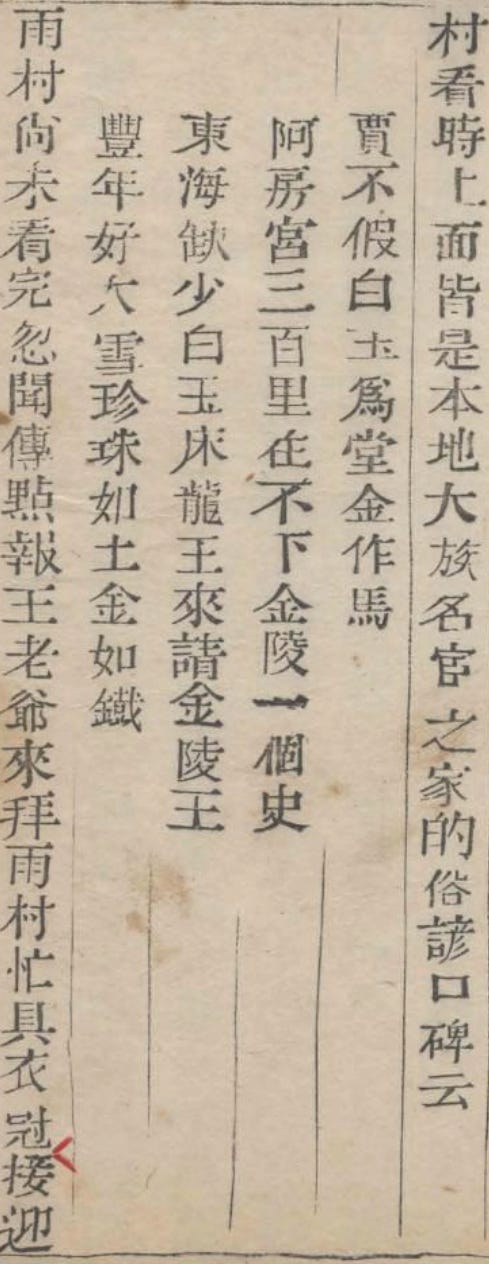 村看時上面皆是本地大族名官之家的俗諺口碑云
賈不假白玉爲堂金作馬
阿房宮三百里住不下金陵一個史
東海缺少白玉床龍王來請金陵王
豐年好大雪珍珠如土金如鐵
雨村尙未看完忽聞傳點報王老爺來拜雨村忙具衣冠接迎